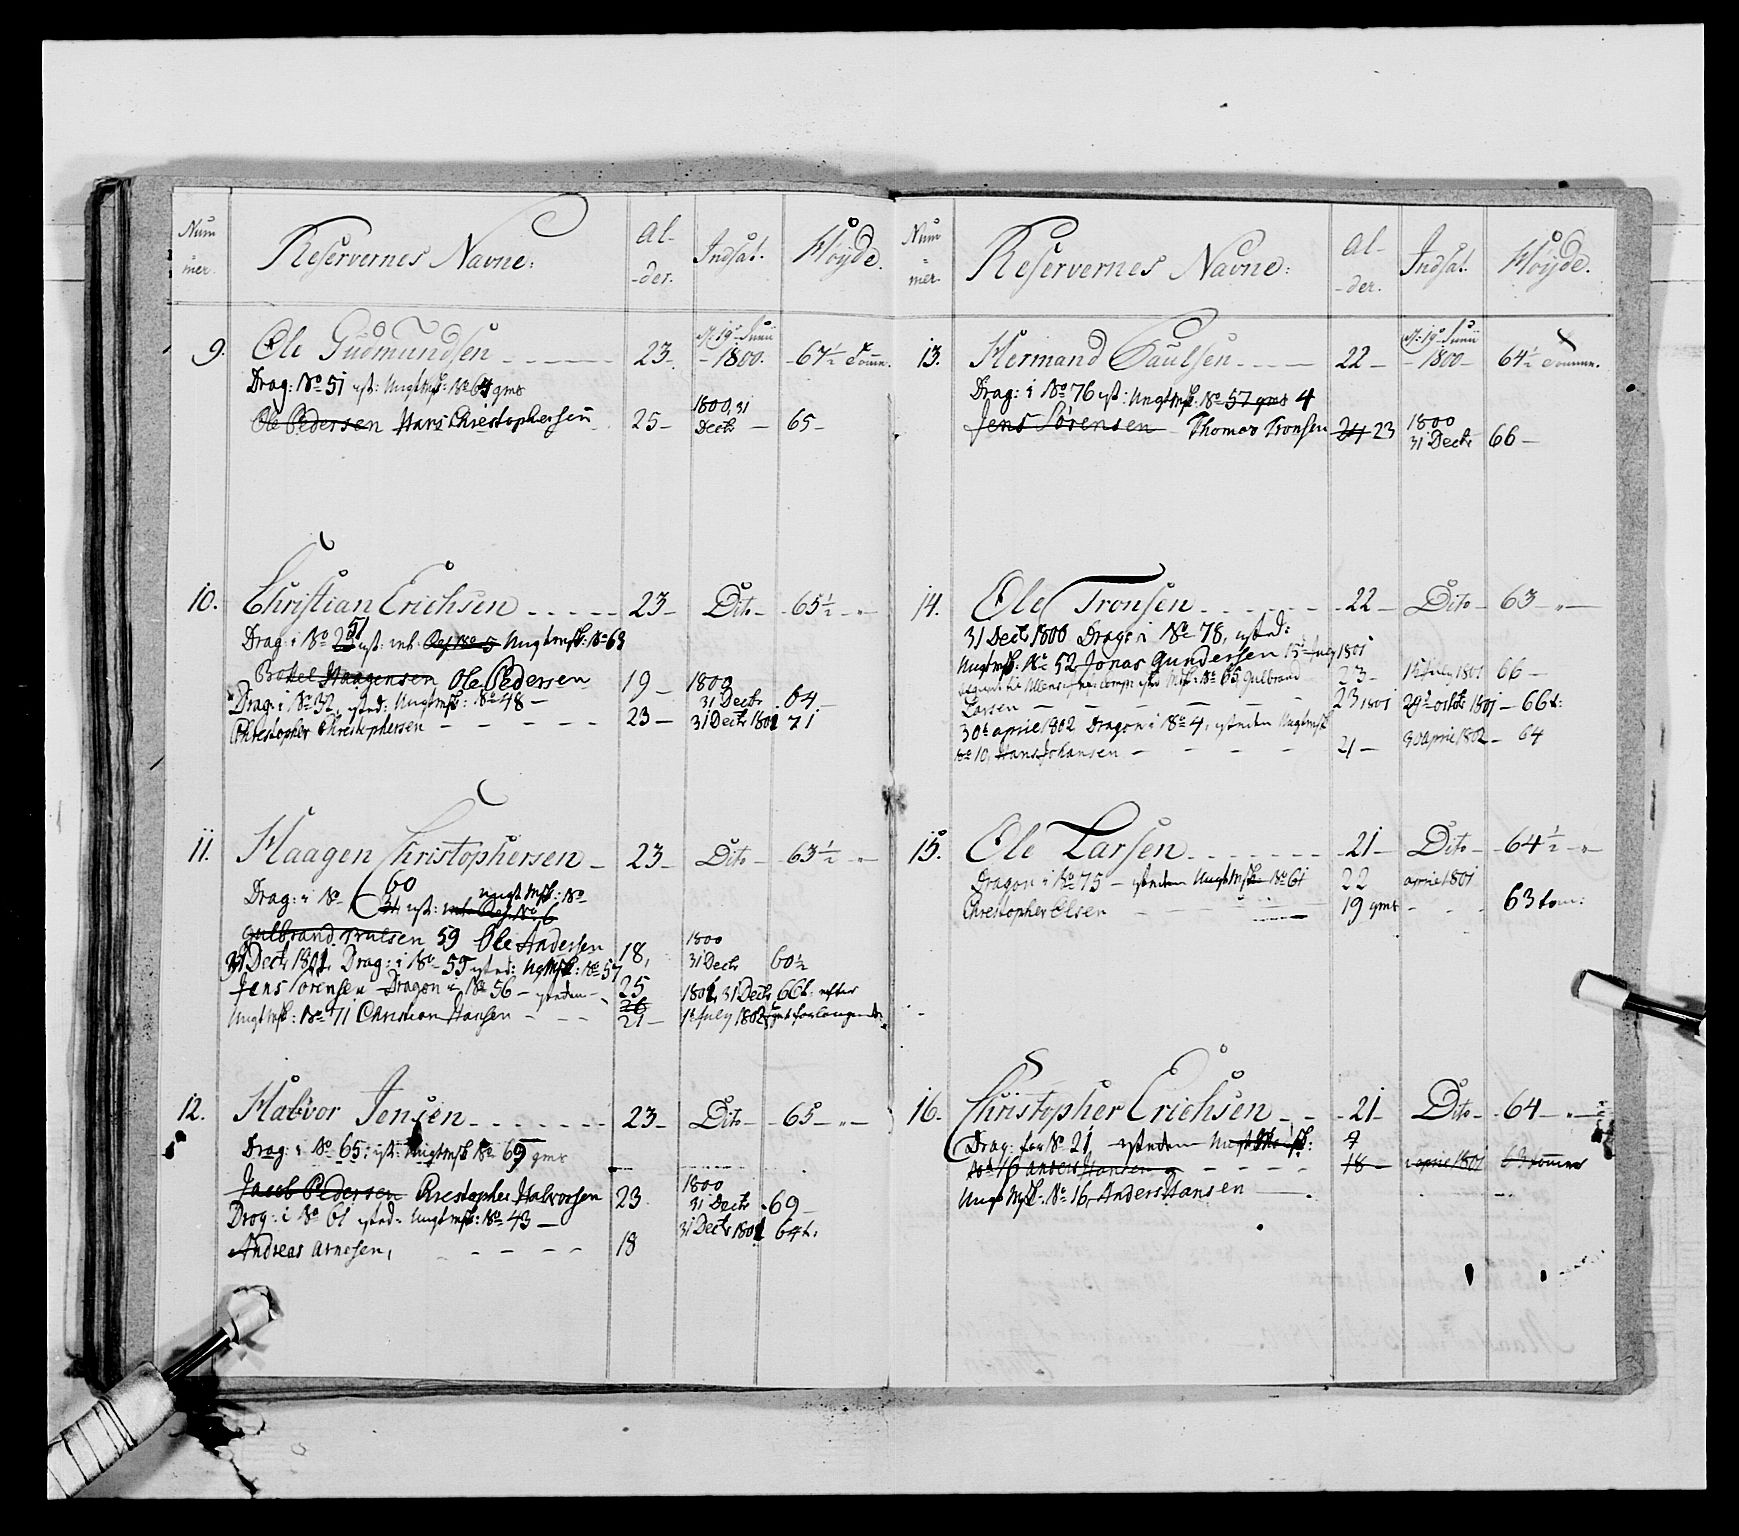 Num
mer.
Reservernes Navne:
Al-
-der.
Indsat.
Höyde.
9. Ole Gudmundsen 23. d: 19 Junii 1800. 67½ Tomme.
Drag: No 51 ist: Ungtmsk: No 64 gms
Ole Pedersen Hans Christophersen 25- 1800, 31 Decbr 65-
10. Christian Erichsen 23- Dito- 65½
Drag: i No 25 51 ist: Ungtmsk: No 63
Botel Haagensen Ole Pedersen 19- 1800 31 Decbr 64-
Drag: i No 32, isted: Ungtmsk: No 48-
Christopher Christophersen 23- 31 Decbr 1801 71
11. Haagen Christophersen 23- Dito- 63½
Drag: i No 31 60 ist: Ungtmsk: No
Gulbrand Trulsen 59 Ole Andersen 18, 1800 31 Decbr 60½
31 Decbr 1801, Drag: i No 55 isted: Ugtmsk: No 57
Jens Sörensen Dragon i No 56 - isteden 25 1801, 31 Decbr 66t. efter
Ungtmsk: No 71 Christian Hansen 26 21- July 1802
12. Halvor Jensen 23- Dito- 65-
Drag: i No 65, ist: Ungtmsk No 69 gms
Jacob Pedersen Christopher Halvorsen 23. 1800 31 Decbr 69-
Drag: i No 61 isted: Ungtmsk: No 43-
Andreas Arnesen, 18 31 Decbr 1801 64t.
Num
mer.
Reservernes Navne:
Al-
-der.
Indsat.
Höyde.
13. Hermand Paulsen 22- d: 19 Junii 1800- 64½ Tomme.
Drag: i No 76 ist: Ungtmsk: No 57 gms 4
Jens Sörensen Thomas Tronsen 24 23 1800 31 Decbr 66-
14. Ole Tronsen 22- Dito- 63-
31 Decbr 1800 Drag: i No 78, isted:
Ungtmsk: No 52 Jonas Gundersen 15 July 1801 23- 15 July 1801 66-
No 65 Gulbrand
Larsen 23 1801 29 octbr 1801- 66t.
30t april 1802 Dragon i No 4, isteden Ungtmsk
No 10, Hans Johansen 21- 30 april 1802- 64
15. Ole Larsen 21- Dito- 64½
Dragon i No 75 - isteden Ungtmsk No 61 22 april 1801
Christopher Olsen 19 gms 63 tom:
16. Christopher Erichsen 21- Dito- 64-
Drag: for No 21 isteden
No 16 Anders Hansen 18- april 1801 63 tommer
Ungt Msk: No 16, Anders Hansen